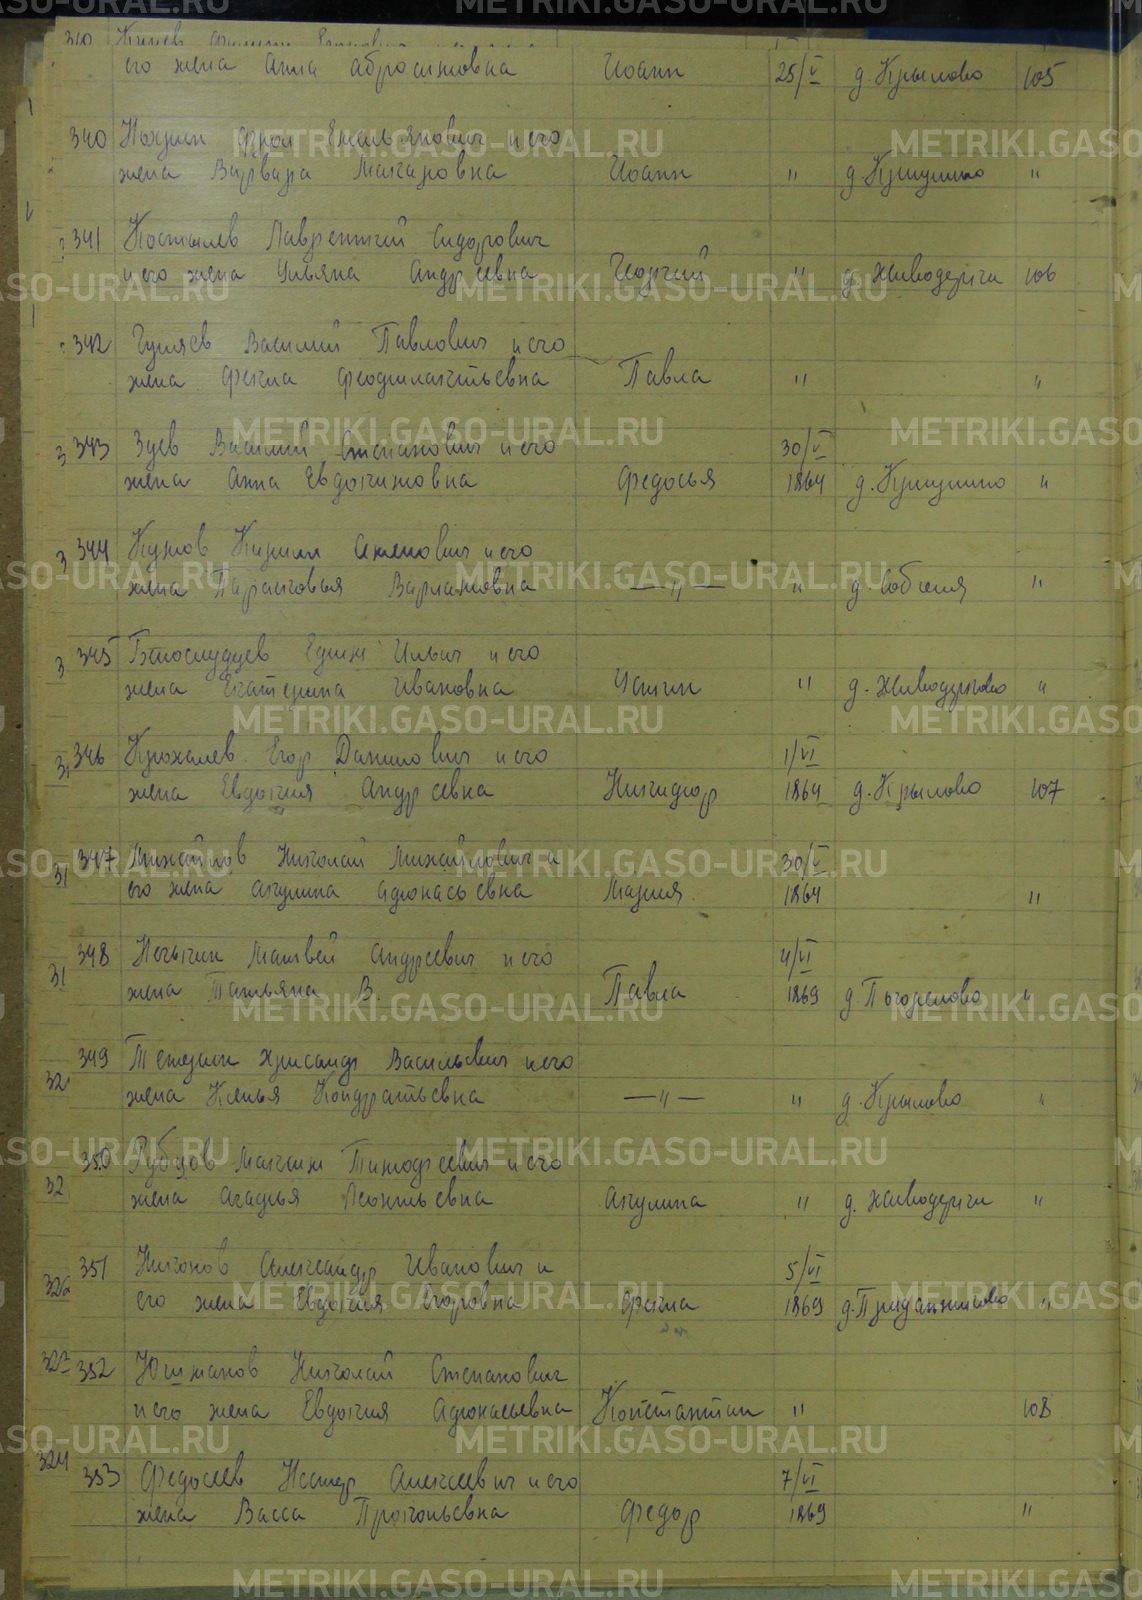 его жена Анна Абросимовна Иоанн 25/V д. Крылово 105
340 Емельянович и его
жена Варвара Макаровна Иоанн " д. "
341 Костылев Лаврентий Сидорович
и его жена Ульяна Андреевна Георгий " д. Живодерки 106
342 Гуляев Василий Павлович и его
жена Фекла Феофилактьевна Павла " "
343 Зуев Василий Степанович и его 30/V
жена Анна Евдокимовна Федосья 1864 д. "
344 Кирилл и его
жена Парасковья Варламовна —"— " д. "
345 Белослудцев Ефим Ильич и его
жена Екатерина Ивановна Устин " д. "
346 Крохалев Егор Данилович и его 1/VI
жена Евдокия Андреевна Никифор 1864 д. Крылово 107
347 Михайлов Николай Михайлович и 30/V
его жена Акулина Афонасьевна Мария 1864 "
348 Матвей Андреевич и его 4/VI
жена Татьяна В. Павла 1869 д. Погорелово "
349 Хрисанф Васильевич и его
жена Кондратьевна —"— " д. Крылово "
350 Рубцов Максим Тимофеевич и его
жена Агафья Леонтьевна Акулина " д. Живодерки "
351 Никонов Александр Иванович и 5/VI
его жена Евдокия Егоровна Фекла 1869 д. "
352 Юшманов Николай Степанович
и его жена Евдокия Афонасьевна Константин " 108
353 Федосеев Нестер Алексеевич и его 7/VI
жена Васса Прокопьевна Федор 1869 "
METRIKI.GASO-URAL.RU